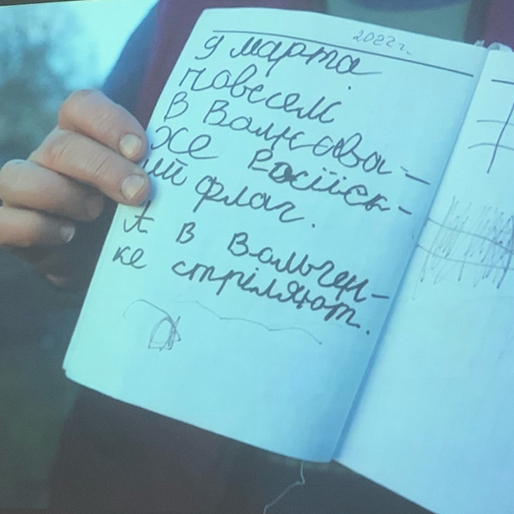 2022 г.
9 марта
Повесем
В Волнова-
хе Російск-
ий флаг.
А в Вольчен-
ке стріляют.